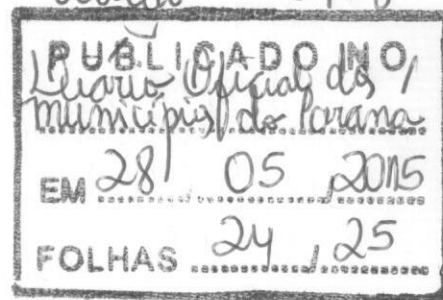 PUBLICADO NO
Diário Oficial dos
municípios do Paraná
EM 28 / 05 / 2015
FOLHAS 24, 25